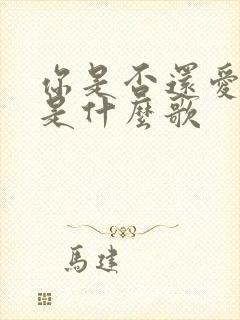 你是否還愛
是什麼歌
馬建